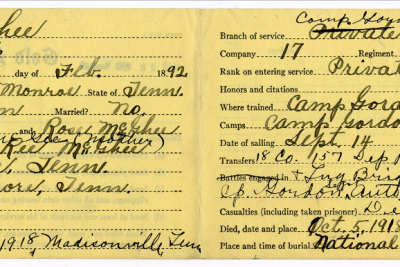 Ghee
day of Feb. 1892
Monroe State of Tenn.
Married? No
and Rose McGhee
mother)
McGhee
Tenn.
more, Tenn.
1918, Madisonville, Tenn
Camp Gor
Branch of service Private
Company 17 Regiment
Rank on entering service Privat
Honors and citations
Where trained Camp Gord
Camps Camp Gordo
Date of sailing Sept. 14
Transfers 18 Co. 157 Dep
Battles engaged in
Cp. Gordon
Casualties (including taken prisoner) De
Died, date and place Oct. 5, 1918
Place and time of burial National